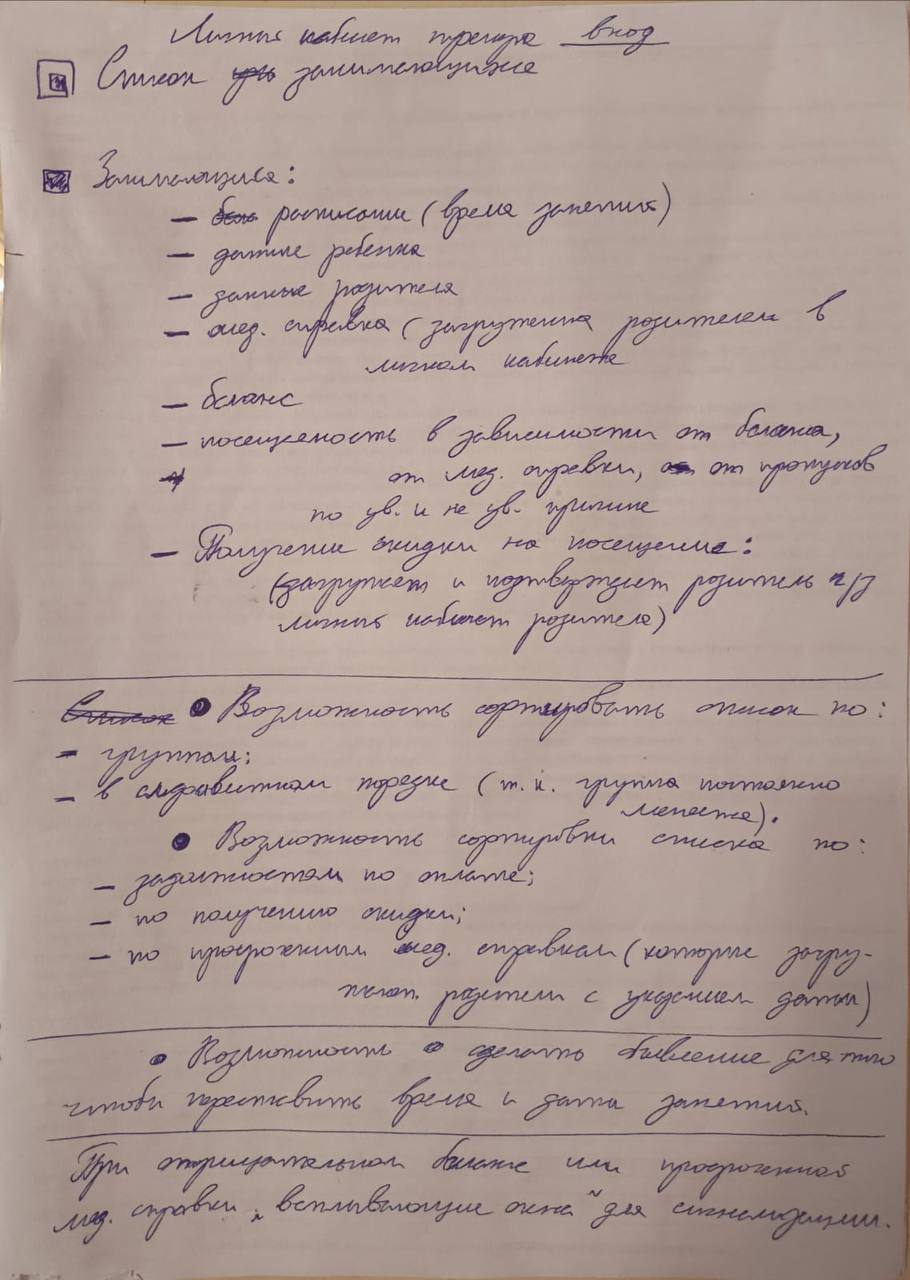 Личный кабинет тренера вход
Список занимающихся
Занимающиеся:
— расписание (время занятия)
— данные ребенка
— данные родителя
— мед. справка (загруженна родителем в
личном кабинете
— баланс
— посещаемость в зависимости от баланса,
от мед. справки, от пропусков
по ув. и не ув. причине
— Получение скидки на посещение:
(загружает и подтверждает родитель ч/з
личный кабинет родителя)
● Возможность сортировать список по:
— группам;
— в алфавитном порядке (т.к. группа постоянно
меняется).
● Возможность сортировки списка по:
— задолжностям по оплате;
— по получению скидки;
— по просроченным мед. справкам (которые загру-
жают родители с указанием даты)
● Возможность сделать объявление для того
чтобы переставить время и дата занятия.
При отрицательном балансе или просроченной
мед. справки „всплывающие окна“ для сигнализации.